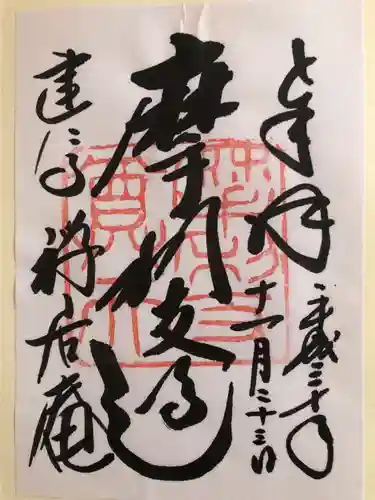 奉拝
平成三十年
十一月二十三日
摩利支尊天
建仁寺
禅居庵